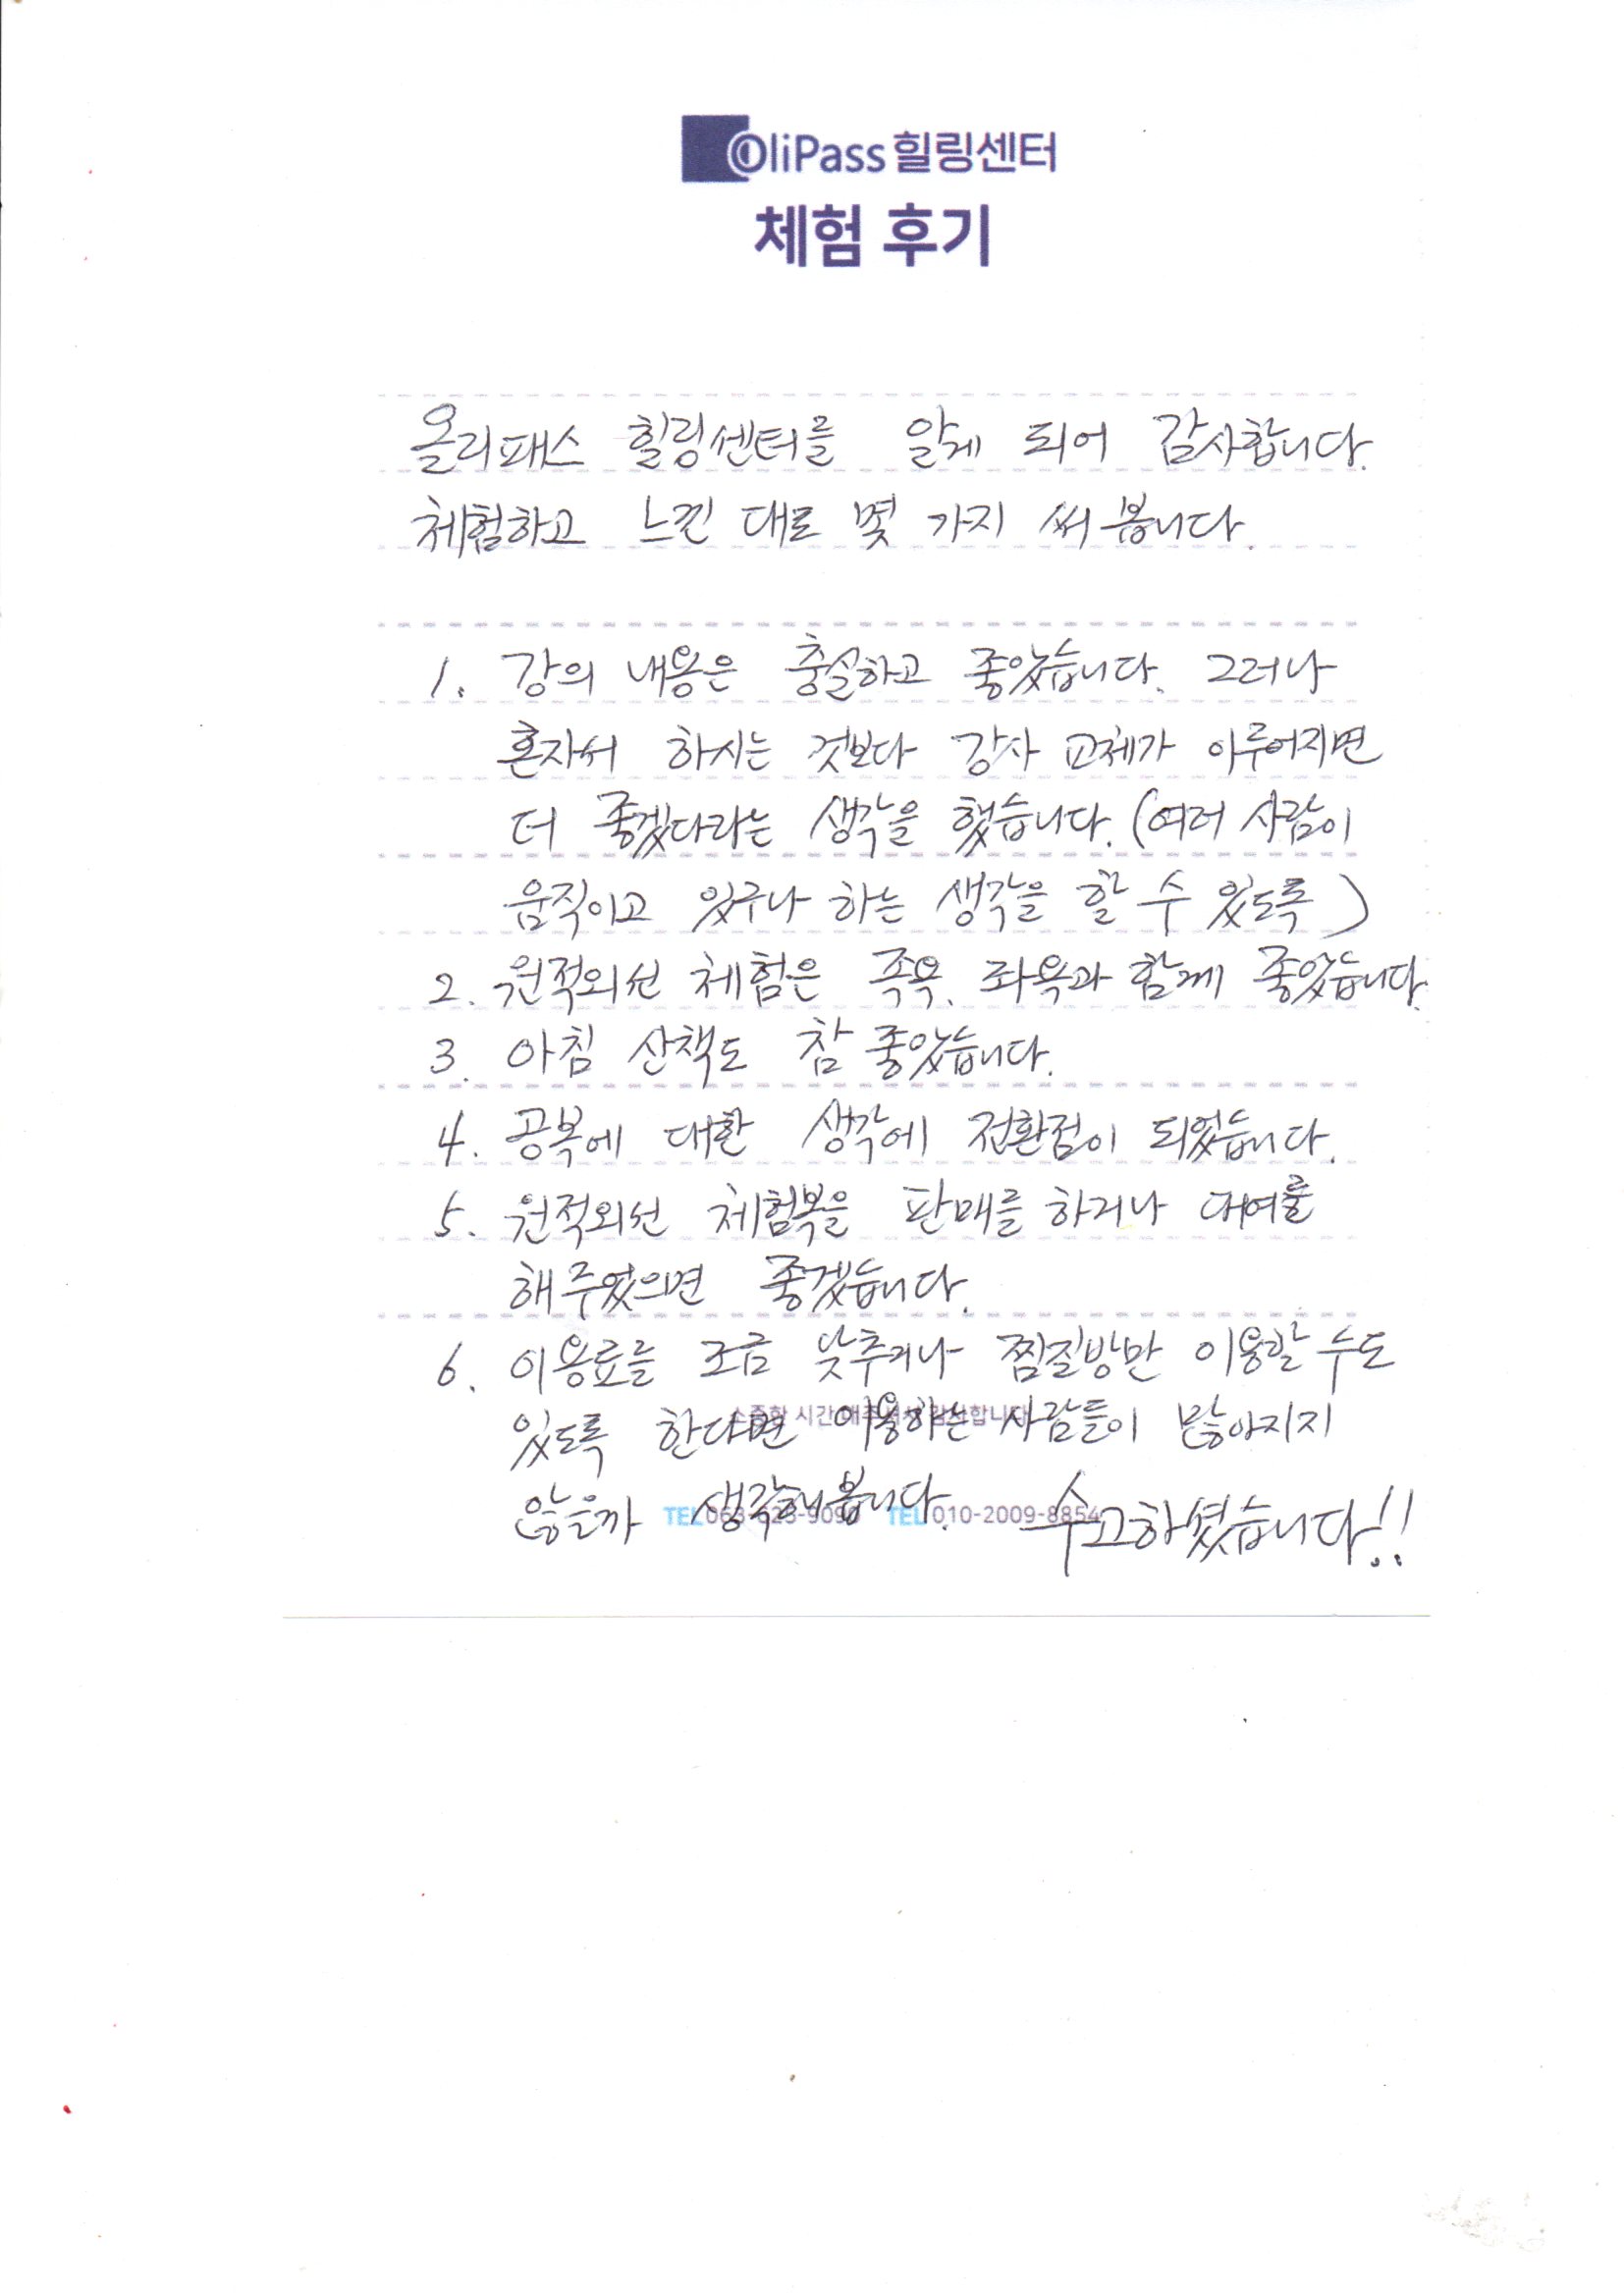 OliPass 힐링센터
체험 후기
올리패스 힐링센터를 알게 되어 감사합니다.
체험하고 느낀 대로 몇 가지 써 봅니다.
1. 강의 내용은 충실하고 좋았습니다. 그러나
혼자서 하시는 것보다 강사 교체가 이루어지면
더 좋겠다라는 생각을 했습니다. (여러 사람이
움직이고 있구나 하는 생각을 할 수 있도록)
2. 원적외선 체험은 족욕, 좌욕과 함께 좋았습니다.
3. 아침 산책도 참 좋았습니다.
4. 공복에 대한 생각에 전환점이 되었습니다.
5. 원적외선 체험복을 판매를 하거나 대여를
해 주었으면 좋겠습니다.
6. 이용료를 조금 낮추거나 찜질방만 이용할 수도
있도록 한다면 이용하는 사람들이 많아지지
소중한 시간 내주셔서 감사합니다
않을까 생각해 봅니다. 수고하셨습니다!!
TEL 063-623-9090 TEL 010-2009-8854